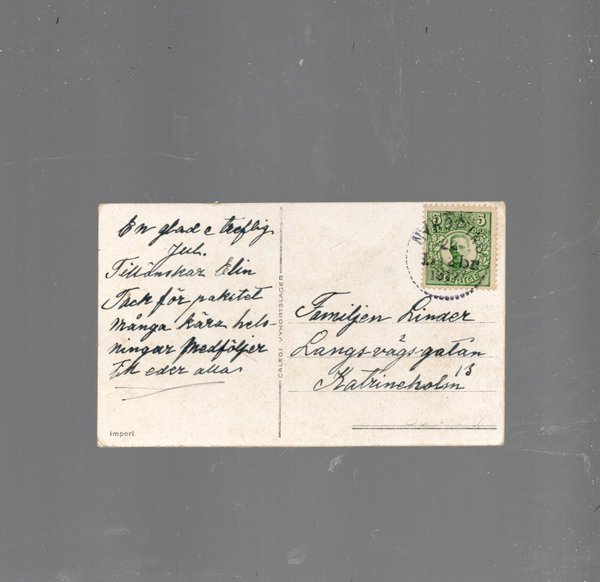 En glad & treflig
Jul.
Tillönskar Elin
Tack för paketet
Många kära hels-
ningar medföljer
till eder alla
Import.
CALEGI VYKORTSLAGER
5 5
Familjen Linder
Langsvägsgatan
13
Katrineholm